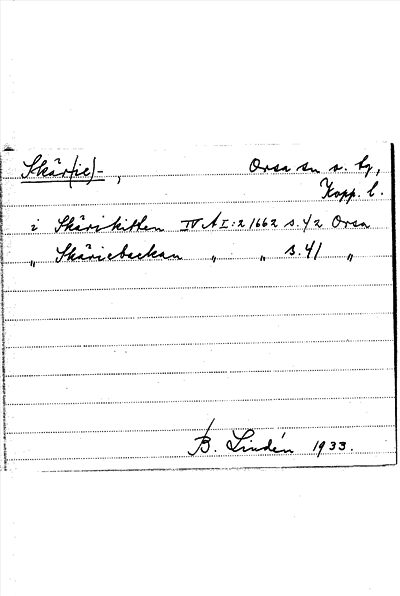 Skär(ie)-, Orsa sn o. tg,
Kopp. l.
i Skärikitten IV A I:2/662 s.42 Orsa
„ Skäriebackan „ „ s.41 „
B. Lindén 1933.